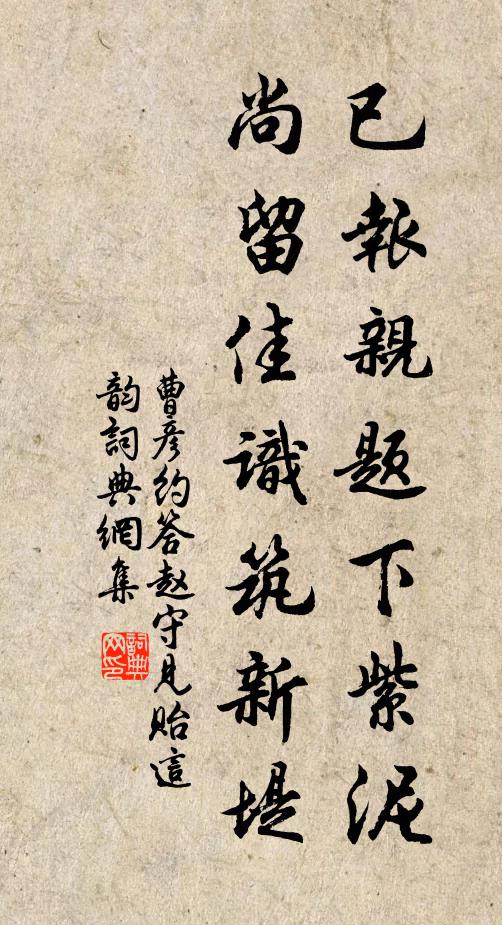 已報親題下紫泥
尚留佳識筑新堤
曹彦約答赵守見貽這
韵詞典網集
詞典网印